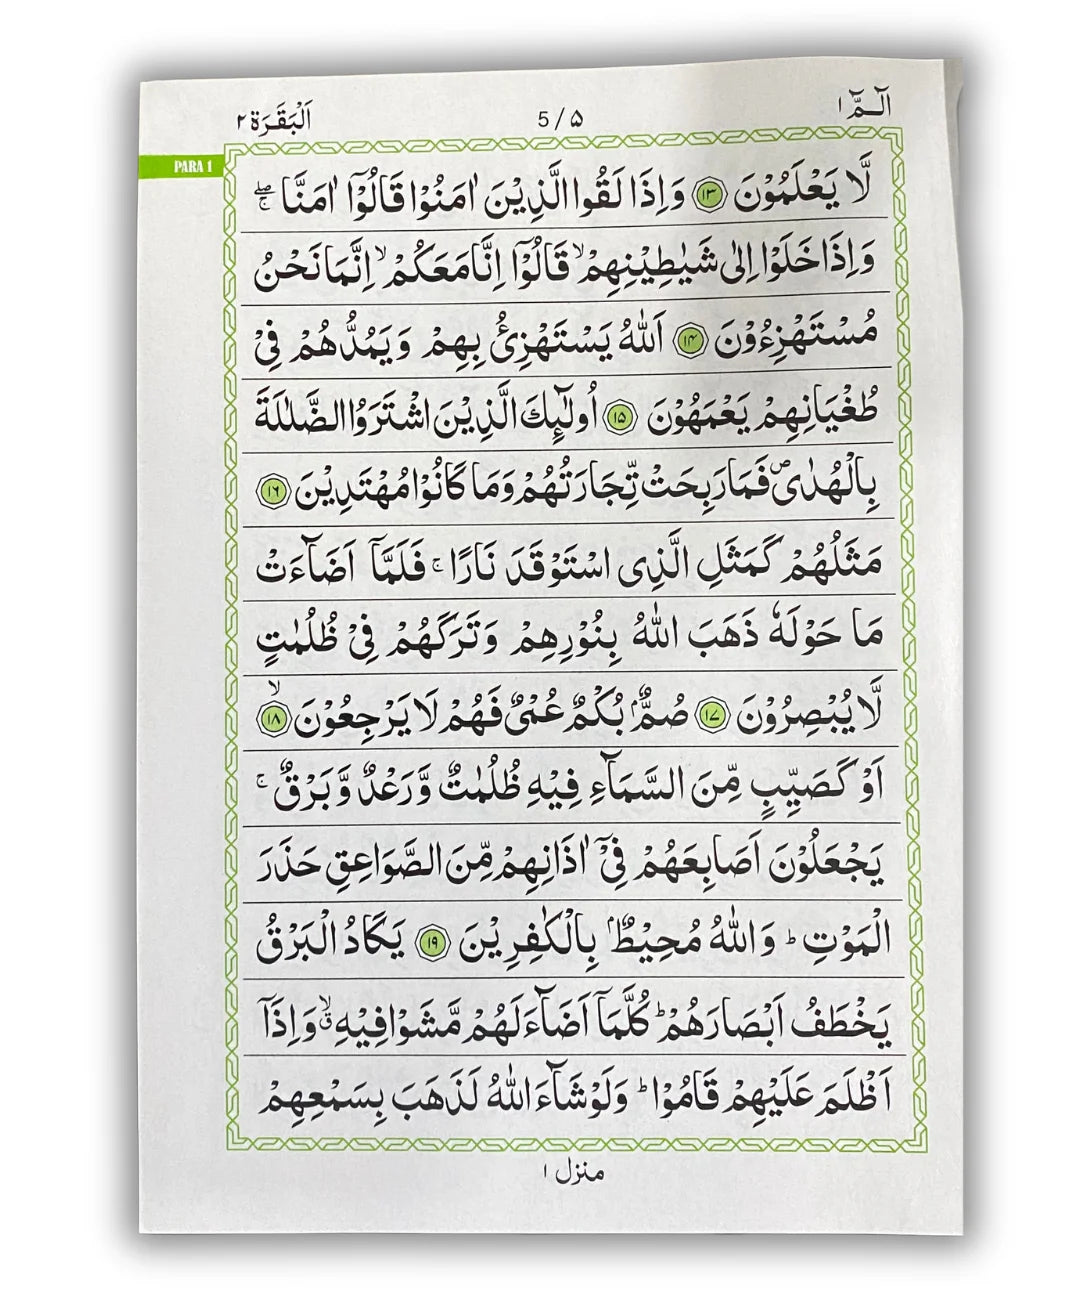 الٓـمّٓ ١ 5/۵ اَلْبَقَرَة ٢
PARA 1
لَّا يَعْلَمُوْنَ ١٣ وَاِذَا لَقُوا الَّذِيْنَ اٰمَنُوْا قَالُوْٓا اٰمَنَّا ۖۚ
وَاِذَا خَلَوْا اِلٰى شَيٰطِيْنِهِمْ ۙ قَالُوْٓا اِنَّا مَعَكُمْ ۙ اِنَّمَا نَحْنُ
مُسْتَهْزِءُوْنَ ١٤ اَللّٰهُ يَسْتَهْزِئُ بِهِمْ وَيَمُدُّهُمْ فِيْ
طُغْيَانِهِمْ يَعْمَهُوْنَ ١٥ اُولٰٓئِكَ الَّذِيْنَ اشْتَرَوُا الضَّلٰلَةَ
بِالْهُدٰى ۪ فَمَا رَبِحَتْ تِّجَارَتُهُمْ وَمَا كَانُوْا مُهْتَدِيْنَ ١٦
مَثَلُهُمْ كَمَثَلِ الَّذِى اسْتَوْقَدَ نَارًا ۚ فَلَمَّآ اَضَآءَتْ
مَا حَوْلَهٗ ذَهَبَ اللّٰهُ بِنُوْرِهِمْ وَتَرَكَهُمْ فِيْ ظُلُمٰتٍ
لَّا يُبْصِرُوْنَ ١٧ صُمٌّۢ بُكْمٌ عُمْىٌ فَهُمْ لَا يَرْجِعُوْنَ ۙ ١٨
اَوْ كَصَيِّبٍ مِّنَ السَّمَآءِ فِيْهِ ظُلُمٰتٌ وَّرَعْدٌ وَّبَرْقٌ ۚ
يَجْعَلُوْنَ اَصَابِعَهُمْ فِيْٓ اٰذَانِهِمْ مِّنَ الصَّوَاعِقِ حَذَرَ
الْمَوْتِ ؕ وَاللّٰهُ مُحِيْطٌۢ بِالْكٰفِرِيْنَ ١٩ يَكَادُ الْبَرْقُ
يَخْطَفُ اَبْصَارَهُمْ ؕ كُلَّمَآ اَضَآءَ لَهُمْ مَّشَوْا فِيْهِ ۙۗ وَاِذَآ
اَظْلَمَ عَلَيْهِمْ قَامُوْا ؕ وَلَوْ شَآءَ اللّٰهُ لَذَهَبَ بِسَمْعِهِمْ
منزل ١